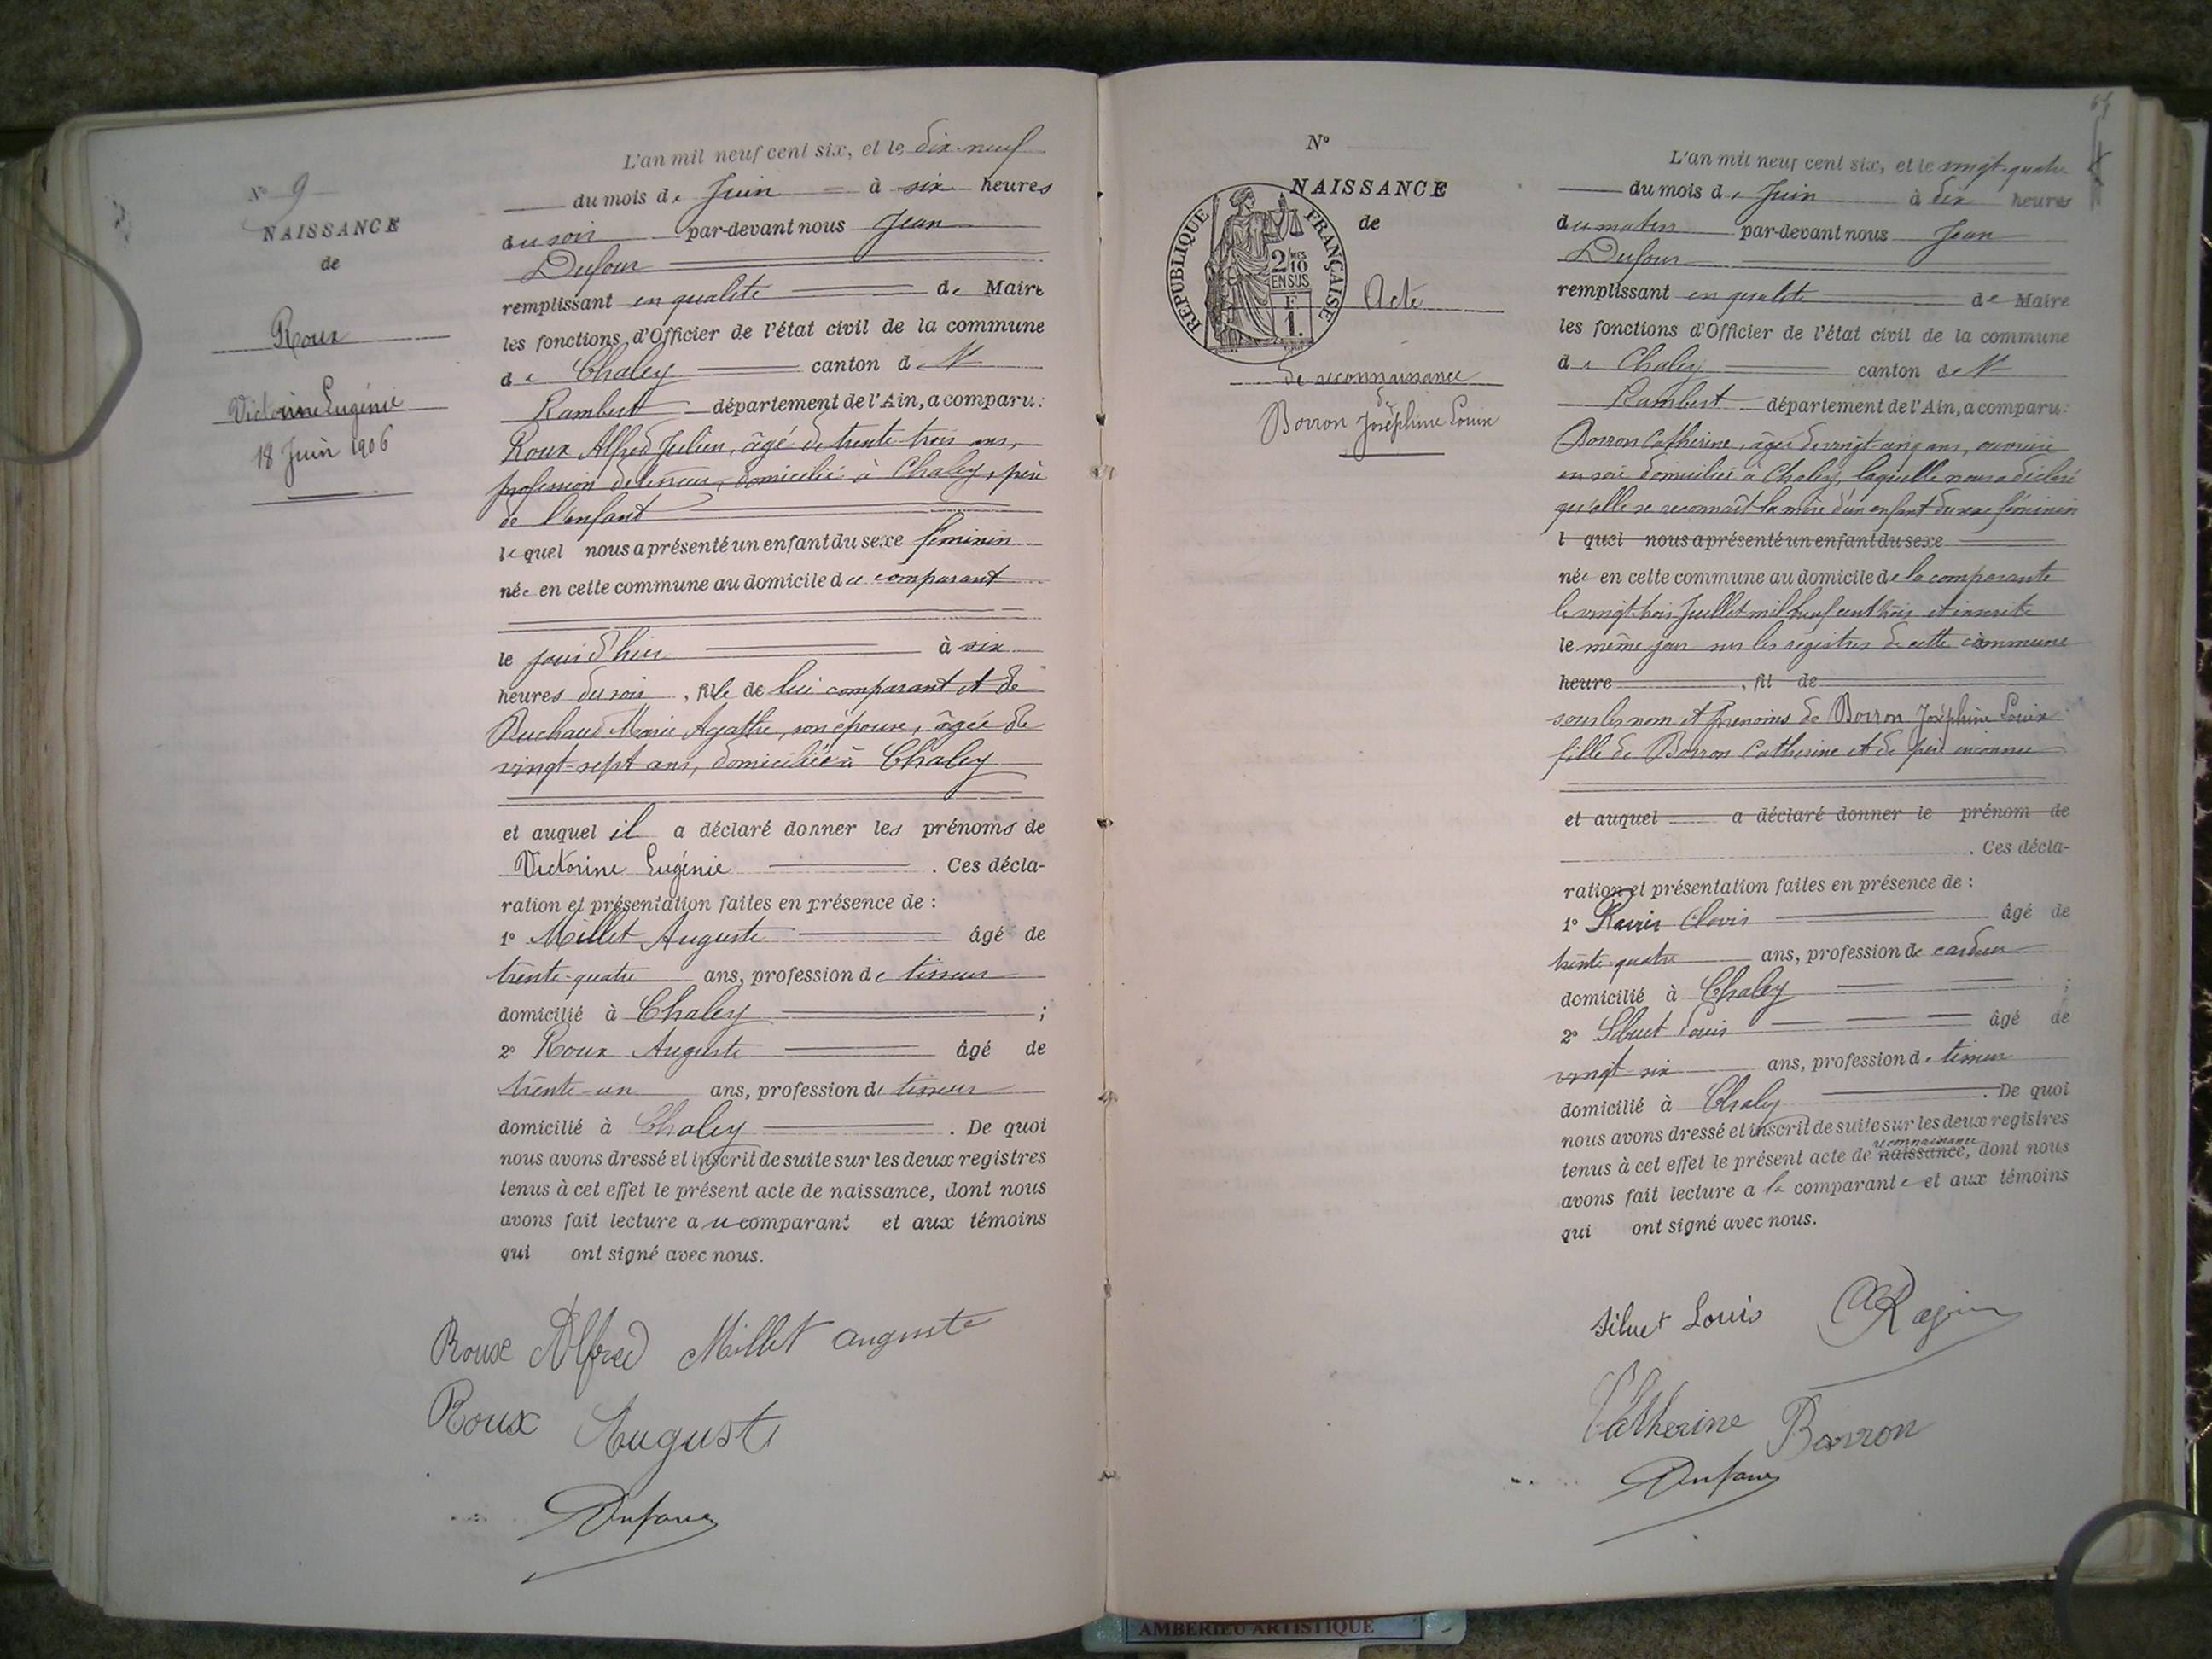 N° 9
NAISSANCE
de
Roux
Victorine Eugénie
18 Juin 1906
L'an mil neuf cent six, et le dix-neuf
du mois de Juin à six heures
du soir par-devant nous Jean
Dufour
remplissant en qualité de Maire
les fonctions d'Officier de l'état civil de la commune
de Chaley canton de St
Rambert département de l'Ain, a comparu:
Roux Alfred Julien, âgé de trente trois ans,
profession de tisseur, domicilié à Chaley, père
de l'enfant
lequel nous a présenté un enfant du sexe féminin
née en cette commune au domicile du comparant
le jour d'hier à six
heures du soir, fille de lui comparant et de
Marie Agathe, son épouse, âgée de
vingt-sept ans, domiciliée à Chaley
et auquel il a déclaré donner les prénoms de
Victorine Eugénie. Ces décla-
ration et présentation faites en présence de :
1° Millet Auguste âgé de
trente-quatre ans, profession de tisseur
domicilié à Chaley ;
2° Roux Auguste âgé de
trente-un ans, profession de tisseur
domicilié à Chaley. De quoi
nous avons dressé et inscrit de suite sur les deux registres
tenus à cet effet le présent acte de naissance, dont nous
avons fait lecture au comparant et aux témoins
qui ont signé avec nous.
Roux Alfred Millet auguste
Roux Auguste
Dufour
N°
NAISSANCE
de
REPUBLIQUE FRANÇAISE
2 MES
10
EN SUS
F
1.
Acte
de reconnaissance
de
Borron Joséphine Louise
L'an mil neuf cent six, et le vingt-quatre
du mois de Juin à dix heures
du matin par-devant nous Jean
Dufour
remplissant en qualité de Maire
les fonctions d'Officier de l'état civil de la commune
de Chaley canton de St
Rambert département de l'Ain, a comparu:
Borron Catherine, âgée de vingt-cinq ans, ouvrière
en soie domiciliée à Chaley, laquelle nous a déclaré
qu'elle se reconnaît la mère d'un enfant du sexe féminin
l quel nous a présenté un enfant du sexe
née en cette commune au domicile de la comparante
le vingt-trois Juillet mil neuf cent trois et inscrite
le même jour sur les registres de cette commune
heure , fil de
sous les nom et prénoms de Borron Joséphine Louise
fille de Borron Catherine et de père inconnu
et auquel a déclaré donner le prénom de
. Ces décla-
ration et présentation faites en présence de :
1° Clovis âgé de
trente-quatre ans, profession de cardeur
domicilié à Chaley ;
2° Louis âgé de
vingt-six ans, profession de tisseur
domicilié à Chaley. De quoi
nous avons dressé et inscrit de suite sur les deux registres
reconnaissance
tenus à cet effet le présent acte de naissance, dont nous
avons fait lecture a la comparante et aux témoins
qui ont signé avec nous.
Louis
Catherine Borron
Dufour
AMBERIEU ARTISTIQUE